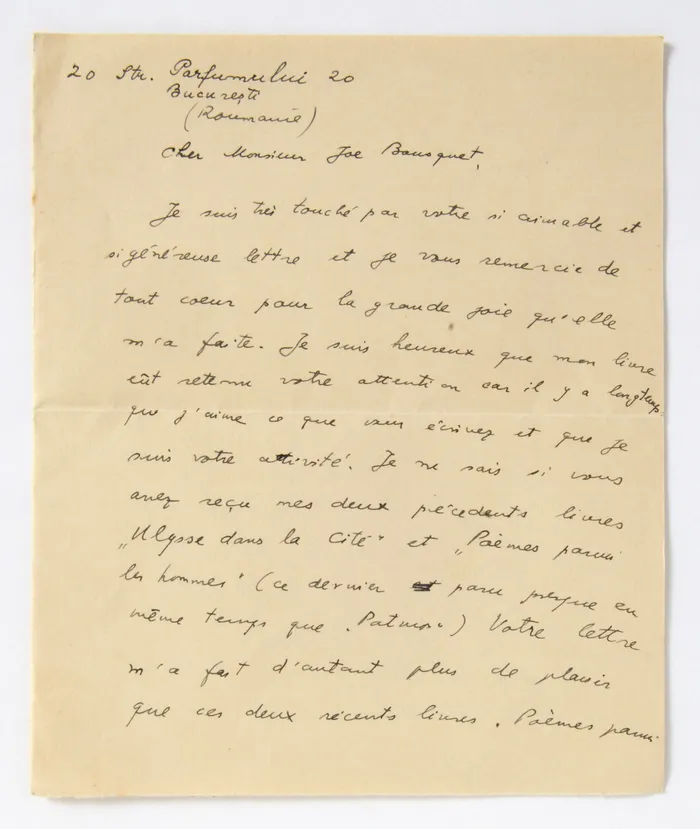 20 Str. Parfumului 20
București
(Roumanie)
Cher Monsieur Joe Bousquet,
Je suis très touché par votre si aimable et
si généreuse lettre et je vous remercie de
tout coeur pour la grande joie qu'elle
m'a faite. Je suis heureux que mon livre
eût retenu votre attention car il y a longtemps
que j'aime ce que vous écrivez et que je
suis votre activité. Je ne sais si vous
avez reçu mes deux pécédents livres
„Ulysse dans la Cité" et „Poèmes parmi
les hommes" (ce dernier paru presque en
même temps que „Patmos") Votre lettre
m'a fait d'autant plus de plaisir
que ces deux récents livres „Poèmes parmi